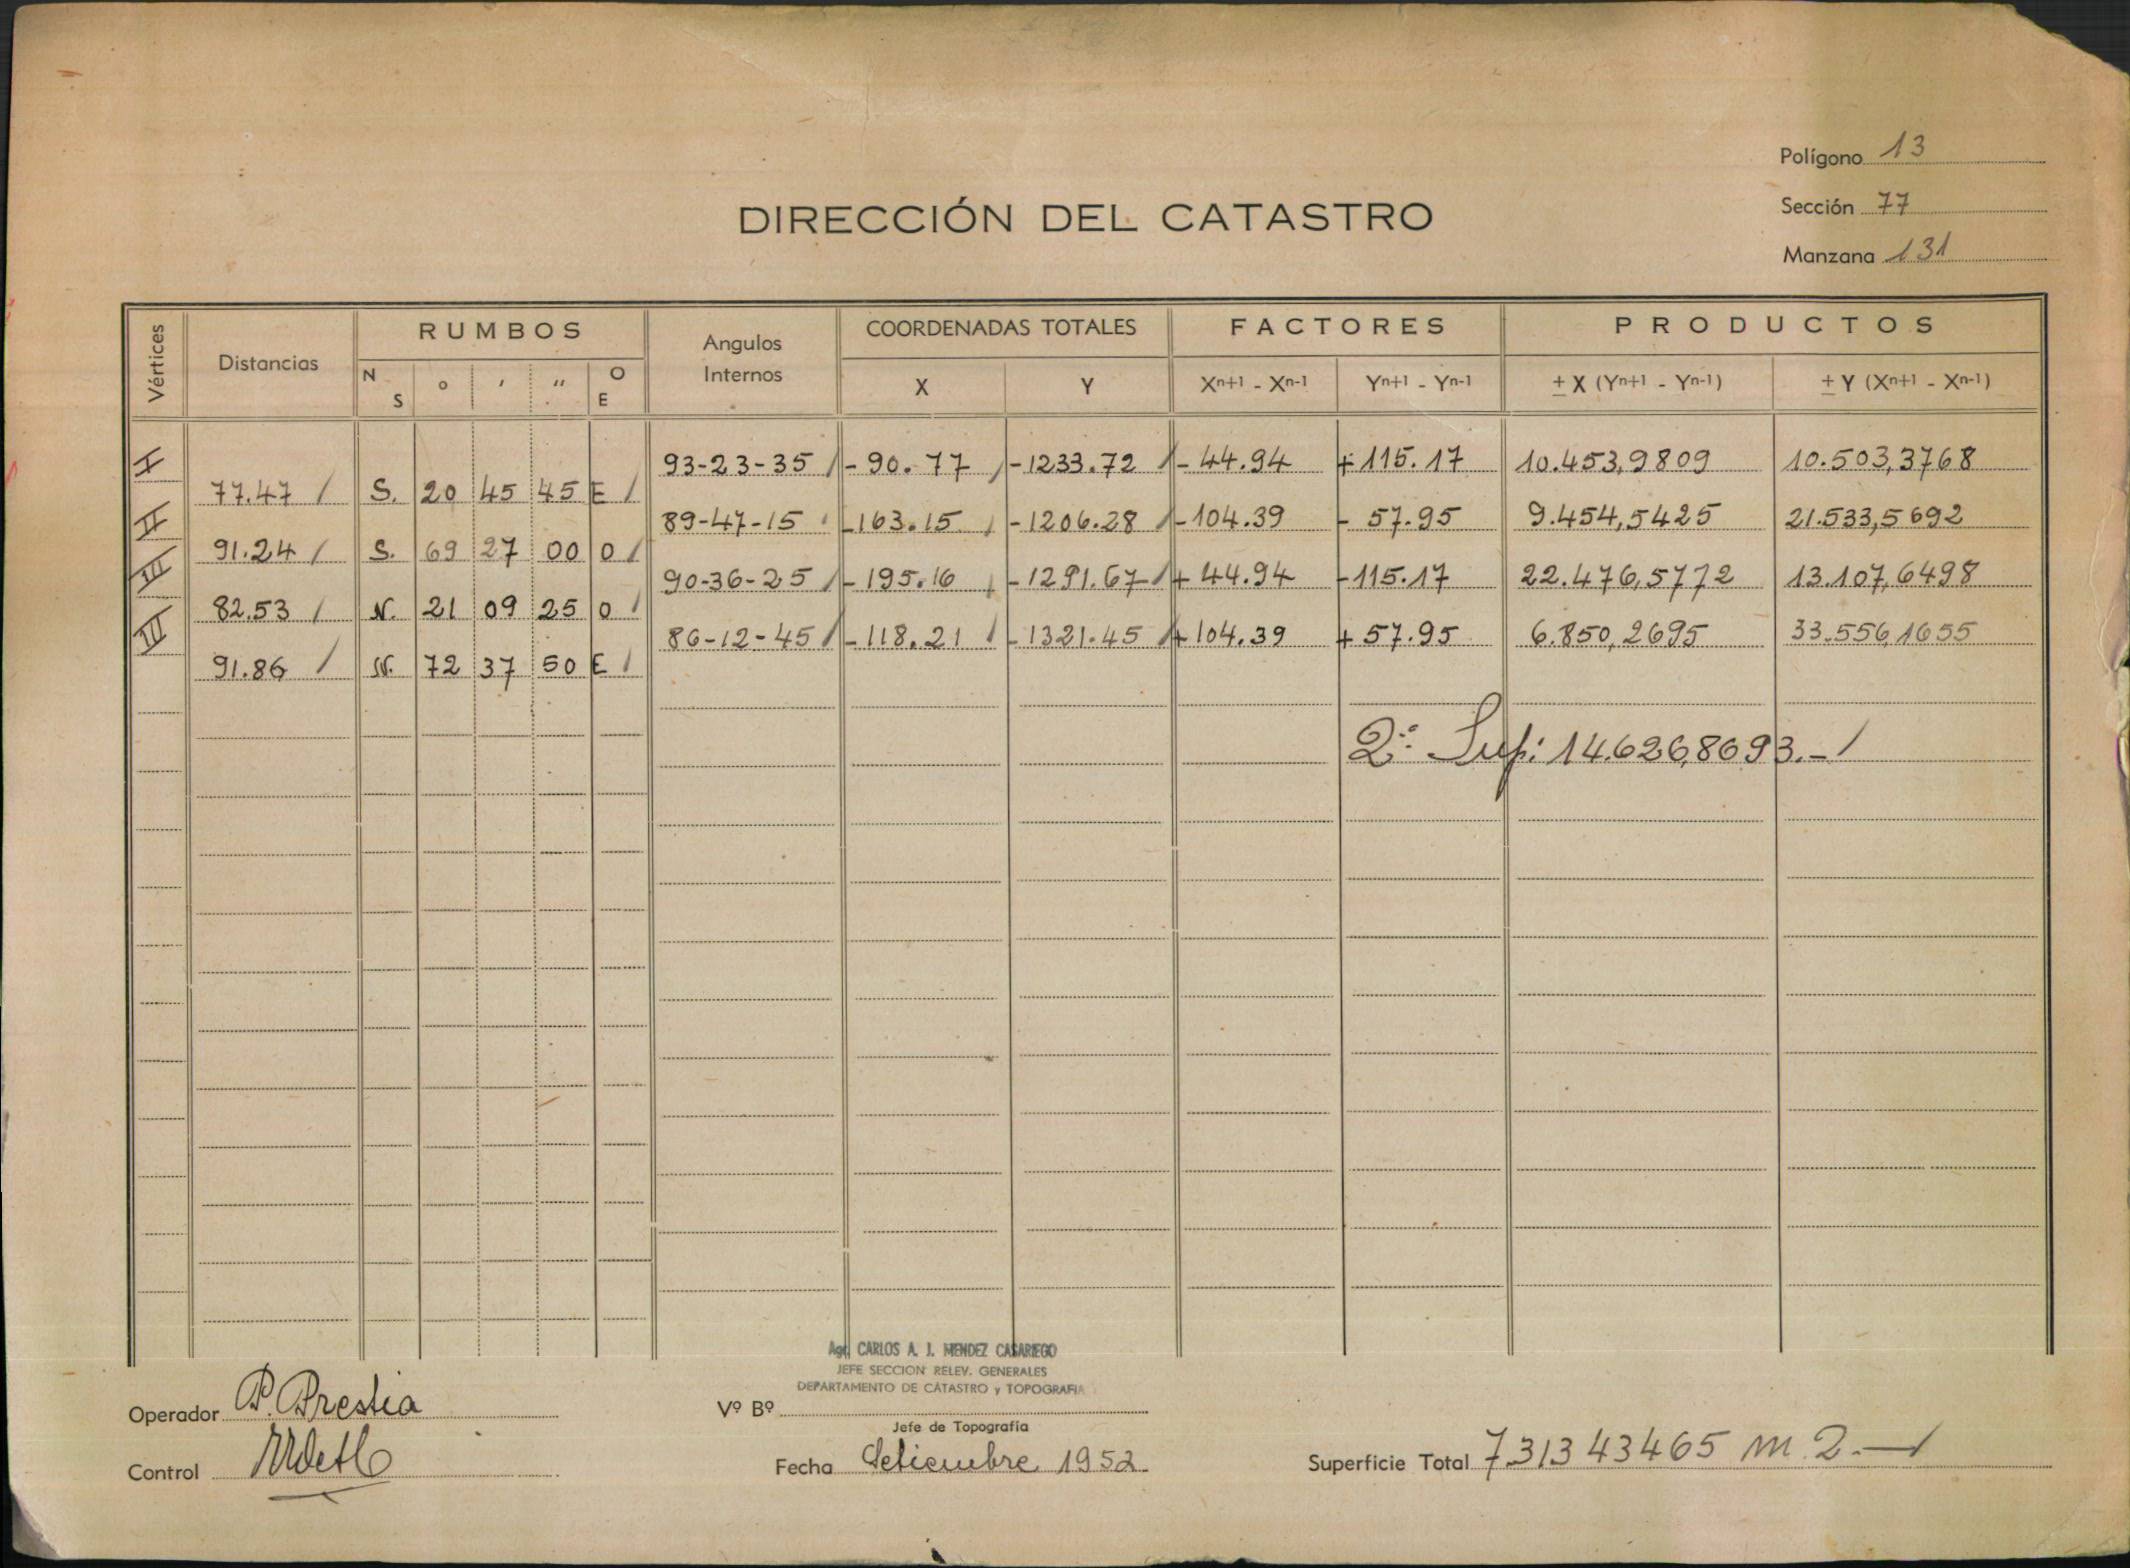 Polígono 13
Sección 77
Manzana 131
DIRECCIÓN DEL CATASTRO
Vértices Distancias RUMBOS Angulos Internos COORDENADAS TOTALES FACTORES PRODUCTOS
N S o ' " O E X Y Xn+1 - Xn-1 Yn+1 - Yn-1 ± X (Yn+1 - Yn-1) ± Y (Xn+1 - Xn-1)
I 93-23-35 - 90.77 - 1233.72 - 44.94 + 115.17 10.453,9809 10.503,3768
77.47 S. 20 45 45 E
II 89-47-15 - 163.15 - 1206.28 - 104.39 - 57.95 9.454,5425 21.533,5692
91.24 S. 69 27 00 O
III 90-36-25 - 195.16 - 1291.67 + 44.94 - 115.17 22.476,5772 13.107,6498
82.53 N. 21 09 25 O
86-12-45 - 118.21 - 1321.45 + 104.39 + 57.95 6.850,2695 33.556,1655
91.86 N. 72 37 50 E
2ª Sup: 14.626,8693.-
Agr. CARLOS A. J. MENDEZ CASARIEGO
JEFE SECCION RELEV. GENERALES
DEPARTAMENTO DE CATASTRO y TOPOGRAFIA
Operador P. Prestia Vº Bº
Jefe de Topografía
Control Fecha Setiembre 1952 Superficie Total 7.31343465 m.2.-